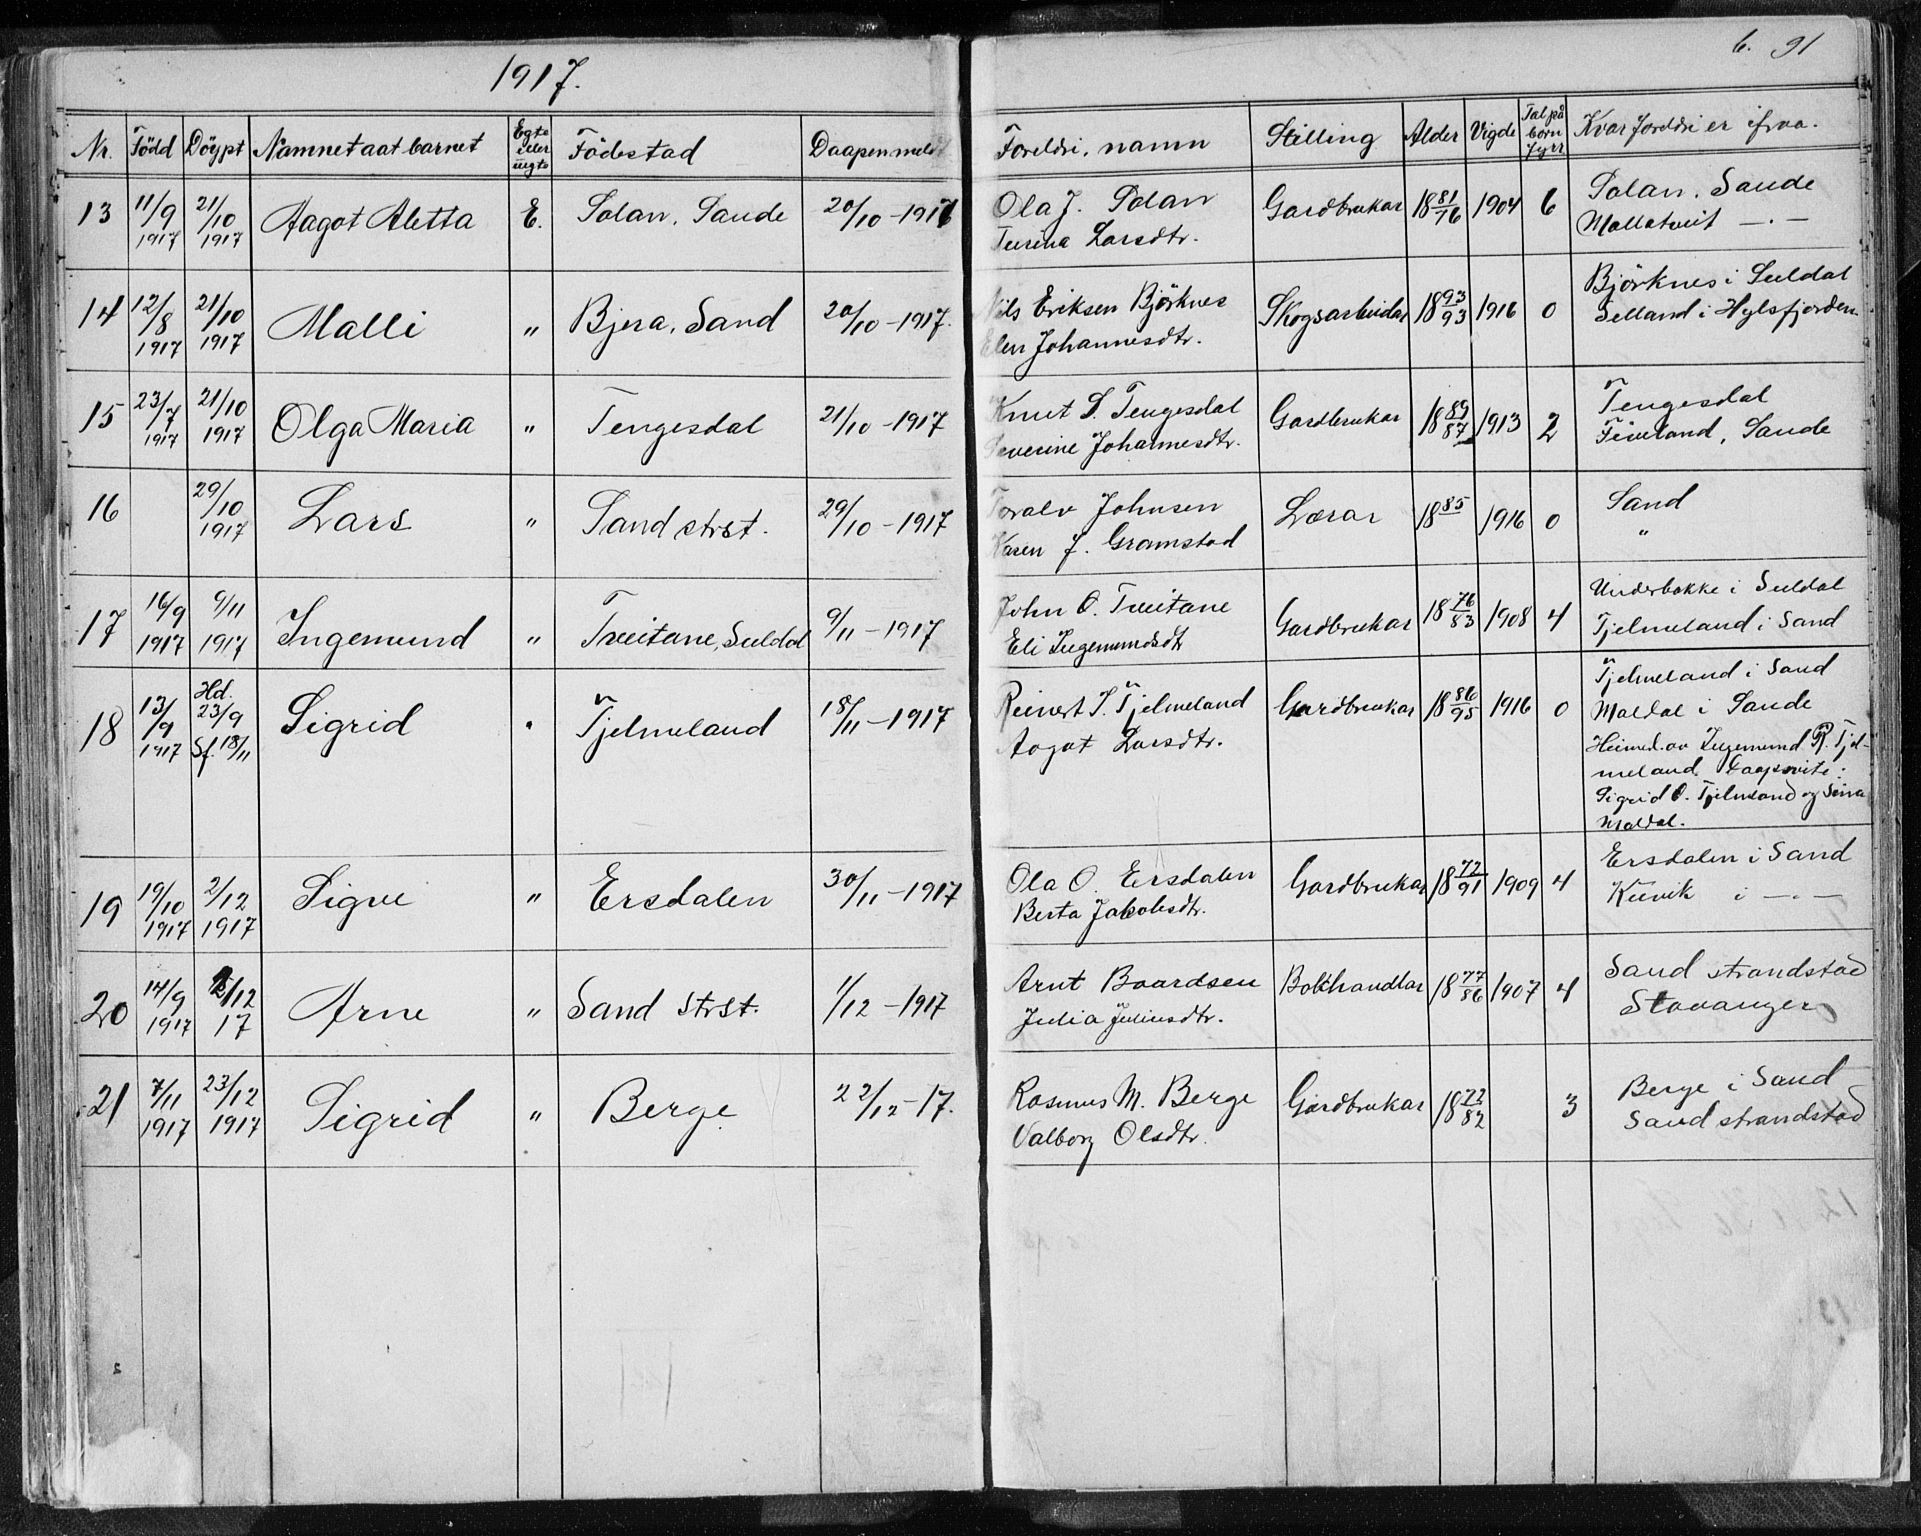 1917.
6. 91
Nr. Född Döypt Namnet aat barnet Egte eller uegte Födestad Daapen meldt Foreldri, namn Stilling Alder Vigde Tal på born fyrr Kvar foreldri er ifraa.
13 11/9 1917 21/10 1917 Aagot Aletta E. Solan, Sande 20/10 - 1917 Ola J. Solan Gardbrukar 1881/76 1904 6 Solan, Sande
Larsdtr. —·—
14 12/8 1917 21/10 1917 Malli " Bjera, Sand 20/10 - 1917. Nils Eriksen Björknes Skogsarbeidar 1893/93 1916 0 Björknes i Suldal
Elen Johannesdtr. Selland i Hylsfjorden
15 23/7 1917 21/10 1917 Olga Maria " Tengesdal 21/10 - 1917 Knut S. Tengesdal Gardbrukar 1889/87 1913 2 Tengesdal
Severine Johannesdtr. Fiveland, Sande
16 29/10 1917 Lars " Sand strst. 29/10 - 1917 Toralv Johnsen Lærar 1885 1916 0 Sand
Karen J. Gramstad "
17 16/9 1917 9/11 1917 Ingemund " Tveitane, Suldal 9/11 - 1917 John O. Tveitane Gardbrukar 1876/83 1908 4 Underbakke i Suldal
Eli Ingemundsdtr Tjelmeland i Sand
18 13/9 1917 Hd. 23/9 Sf. 18/11 Sigrid " Tjelmeland 18/11 - 1917 Reinert I. Tjelmeland Gardbrukar 1886/95 1916 0 Tjelmeland i Sand
Aagot Larsdtr. Maldal i Sande
Heimed. av Ingemund R. Tjel-
meland. Daapsvite:
Sigrid O. Tjelmeland og
Maldal.
19 19/10 1917 2/12 1917 Sigve " Ersdalen 30/11 - 1917 Ola O. Ersdalen Gardbrukar 1872/91 1909 4 Ersdalen i Sand
Berta Jakobsdtr. Kvivik i —·—
20 14/9 1917 2/12 17 Arne " Sand strst. 1/12 - 1917 Arnt Baardsen Bokhandlar 1877/86 1907 4 Sand strandstad
Julia Juliusdtr. Stavanger
21 7/11 1917 23/12 1917 Sigrid " Berge 22/12 - 17. Rasmus M. Berge Gardbrukar 1872/82 3 Berge i Sand
Valborg Olsdtr. Sand strandstad